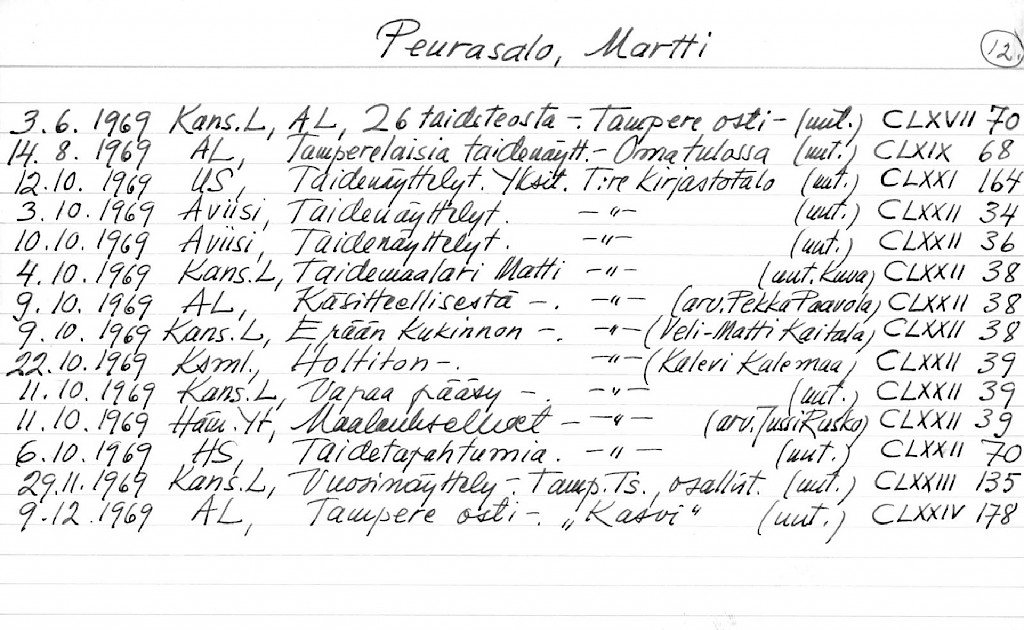 Peurasalo, Martti
12.
3.6.1969 Kans.L, AL, 26 taideteosta -. Tampere osti - (nut.) CLXVII 70
14.8.1969 AL, Tamperelaisia taidenäytt.- Oma tulossa (nut.) CLXIX 68
12.10.1969 US, Taidenäyttelyt. Yksit. T:re Kirjastotalo (nut.) CLXXI 164
3.10.1969 Aviisi, Taidenäyttelyt. -"- (nut.) CLXXII 34
10.10.1969 Aviisi, Taidenäyttelyt. -"- (nut.) CLXXII 36
4.10.1969 Kans.L, Taidemaalari Matti -"- (nut. Kuva) CLXXII 38
9.10.1969 AL, Käsitteellisestä -. -"- (arv. Pekka Paavola) CLXXII 38
9.10.1969 Kans.L, Erään Kukinnon -. -"- (Veli-Matti Kaitala) CLXXII 38
22.10.1969 Ksml., Holtiton -. -"- (Kalevi Kalemaa) CLXXII 39
11.10.1969 Kans.L, Vapaa pääsy -. -"- (nut.) CLXXII 39
11.10.1969 Häm.Yt, Maalaukselliset - -"- (arv. Jussi Rusko) CLXXII 39
6.10.1969 HS, Taidetapahtumia. -"- (nut.) CLXXII 70
29.11.1969 Kans.L, Vuosinäyttely -. Tamp.Ts., osallist. (nut.) CLXXIII 135
9.12.1969 AL, Tampere osti -. „Kasvi" (nut.) CLXXIV 178